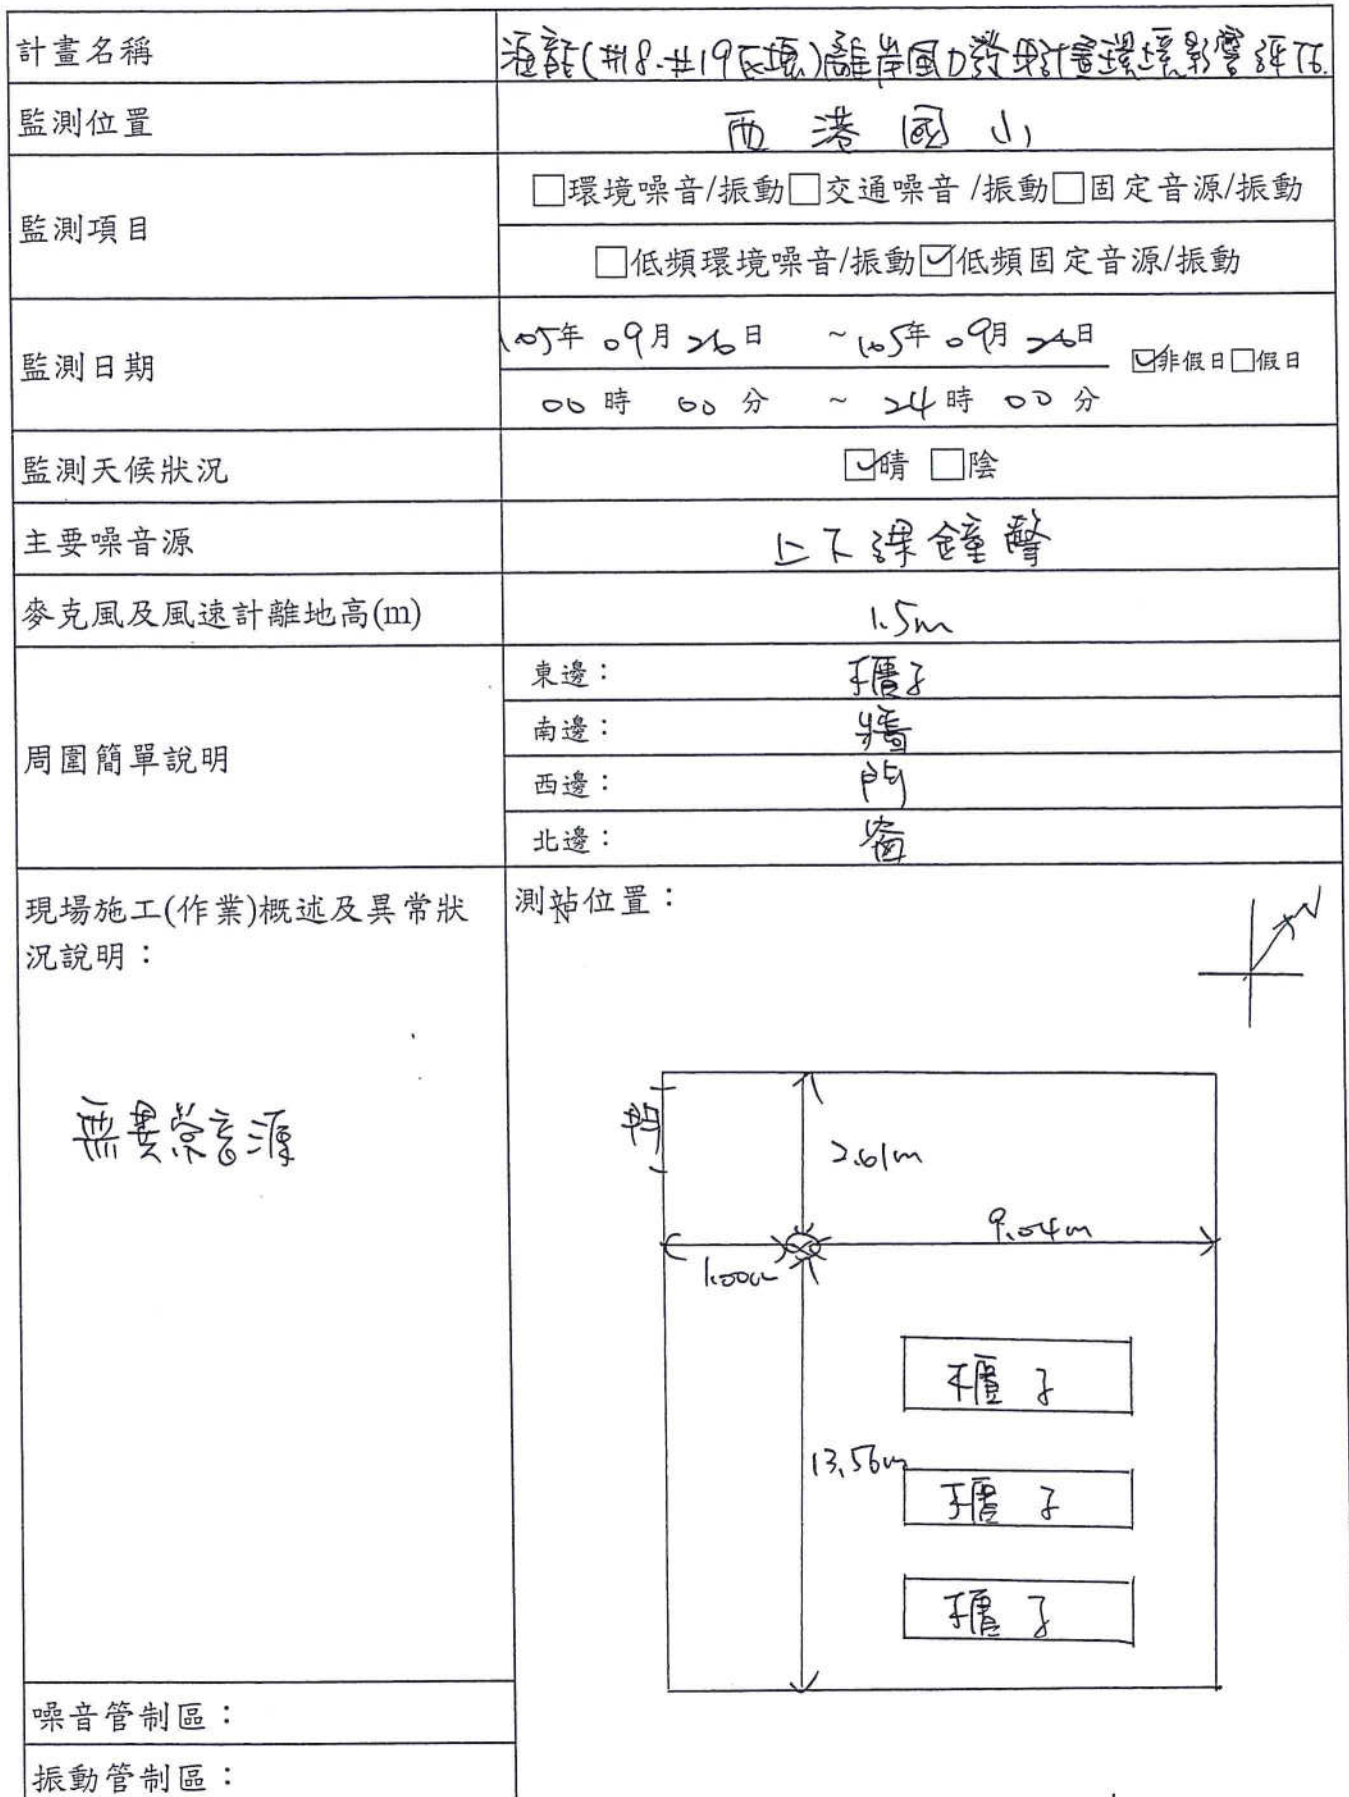 計畫名稱
海龍(#18.#19區塊)離岸風力發電計畫環境影響評估.
監測位置
西港國小
監測項目
□環境噪音/振動□交通噪音/振動□固定音源/振動
□低頻環境噪音/振動☑低頻固定音源/振動
監測日期
105年09月26日 ~105年09月26日
☑非假日□假日
00時 00分 ~ 24時 00分
監測天候狀況
☑晴 □陰
主要噪音源
上下課鐘聲
麥克風及風速計離地高(m)
1.5m
周圍簡單說明
東邊： 櫃子
南邊： 牆
西邊： 門
北邊： 窗
現場施工(作業)概述及異常狀
況說明：
測站位置：
N
無異常音源
門
2.61m
9.04m
1.00m
櫃子
13.56m
櫃子
櫃子
噪音管制區：
振動管制區：